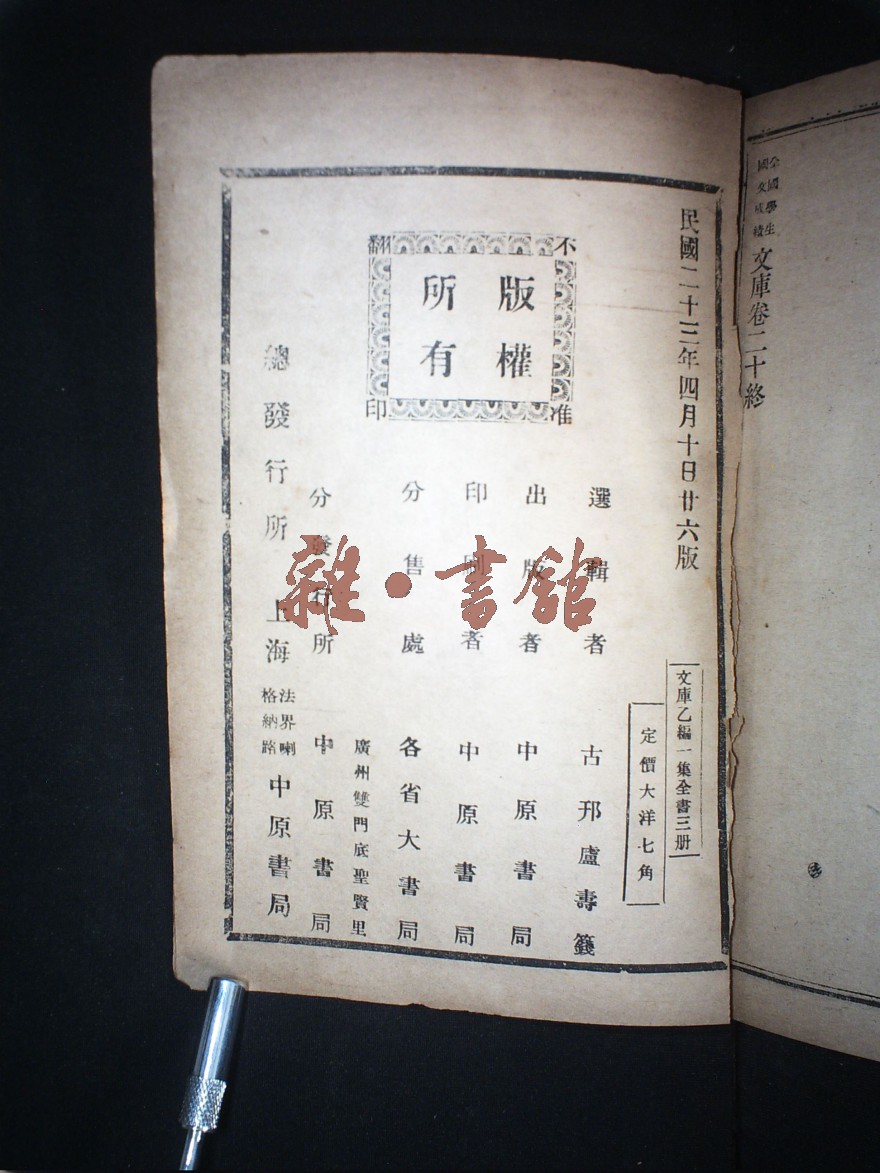 全國學生
國文成績
文庫卷二十終
民國二十三年四月十日廿六版
文庫乙編一集全書三册
定價大洋七角
不准翻印
版權所有
選輯者 古邗盧壽籛
出版者 中原書局
印刷者 中原書局
分售處 各省大書局
廣州雙門底聖賢里
分發行所 中原書局
總發行所 上海
法界喇
格納路
中原書局
雜·書館